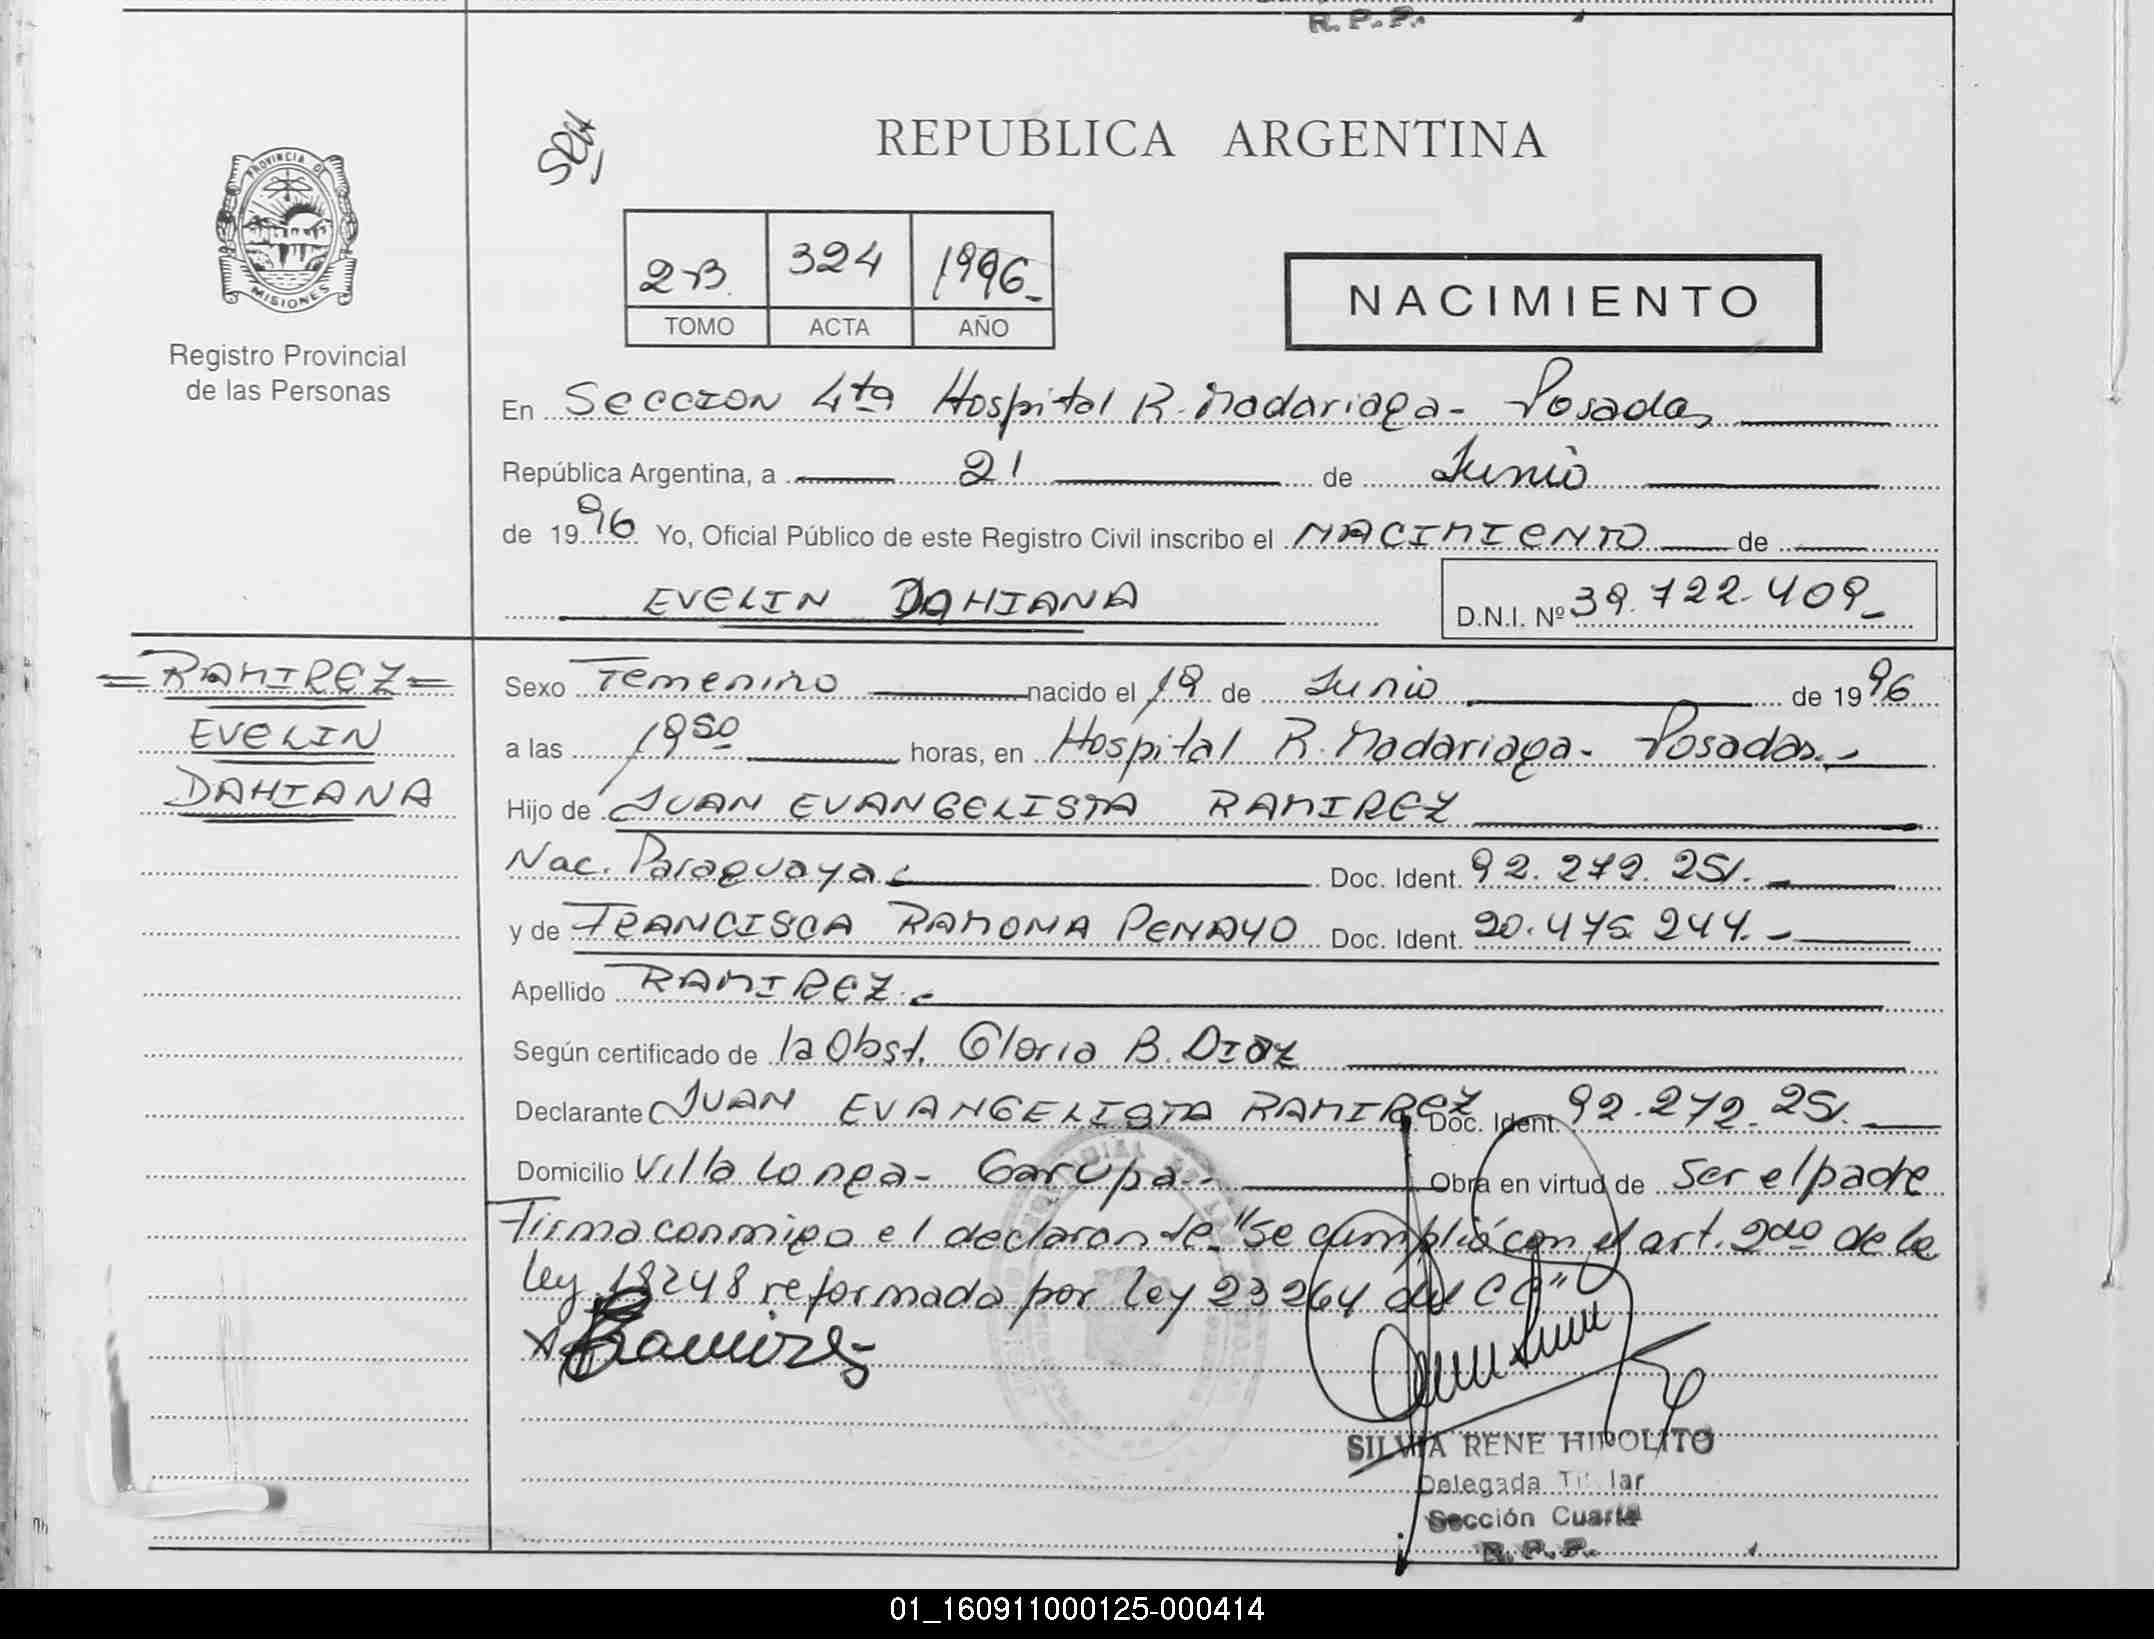 R. P. P.
REPUBLICA ARGENTINA
PROVINCIA DE
MISIONES
Registro Provincial
de las Personas
2-B. 324 1996_
TOMO ACTA AÑO
NACIMIENTO
En SECCION 4ta Hospital R. Madariaga - Posadas
República Argentina, a 21 de Junio
de 1996 Yo, Oficial Público de este Registro Civil inscribo el NACIMIENTO de
EVELIN DAHIANA D.N.I. Nº 39.722.409_
=RAMIREZ=
EVELIN
DAHIANA
Sexo Femenino nacido el 19 de Junio de 1996
a las 19 50 horas, en Hospital R. Madariaga - Posadas.-
Hijo de JUAN EVANGELISTA RAMIREZ
Nac. Paraguaya.- Doc. Ident. 92.272.251.-
y de FRANCISCA RAMONA PENAYO Doc. Ident. 20.475.244.-
Apellido RAMIREZ.-
Según certificado de la Obst. Gloria B. DIAZ
Declarante JUAN EVANGELISTA RAMIREZ Doc. Ident. 92.272.251.
Domicilio Villa Longa - Garupa.- Obra en virtud de ser el padre
Firma conmigo el declarante. "Se cumplió con el art. 2do de la
ley 18248 reformada por ley 23264 del CC"
x Ramirez
SILVIA RENE HIPOLITO
Delegada Titular
Sección Cuarta
R. P. P.
01_160911000125-000414